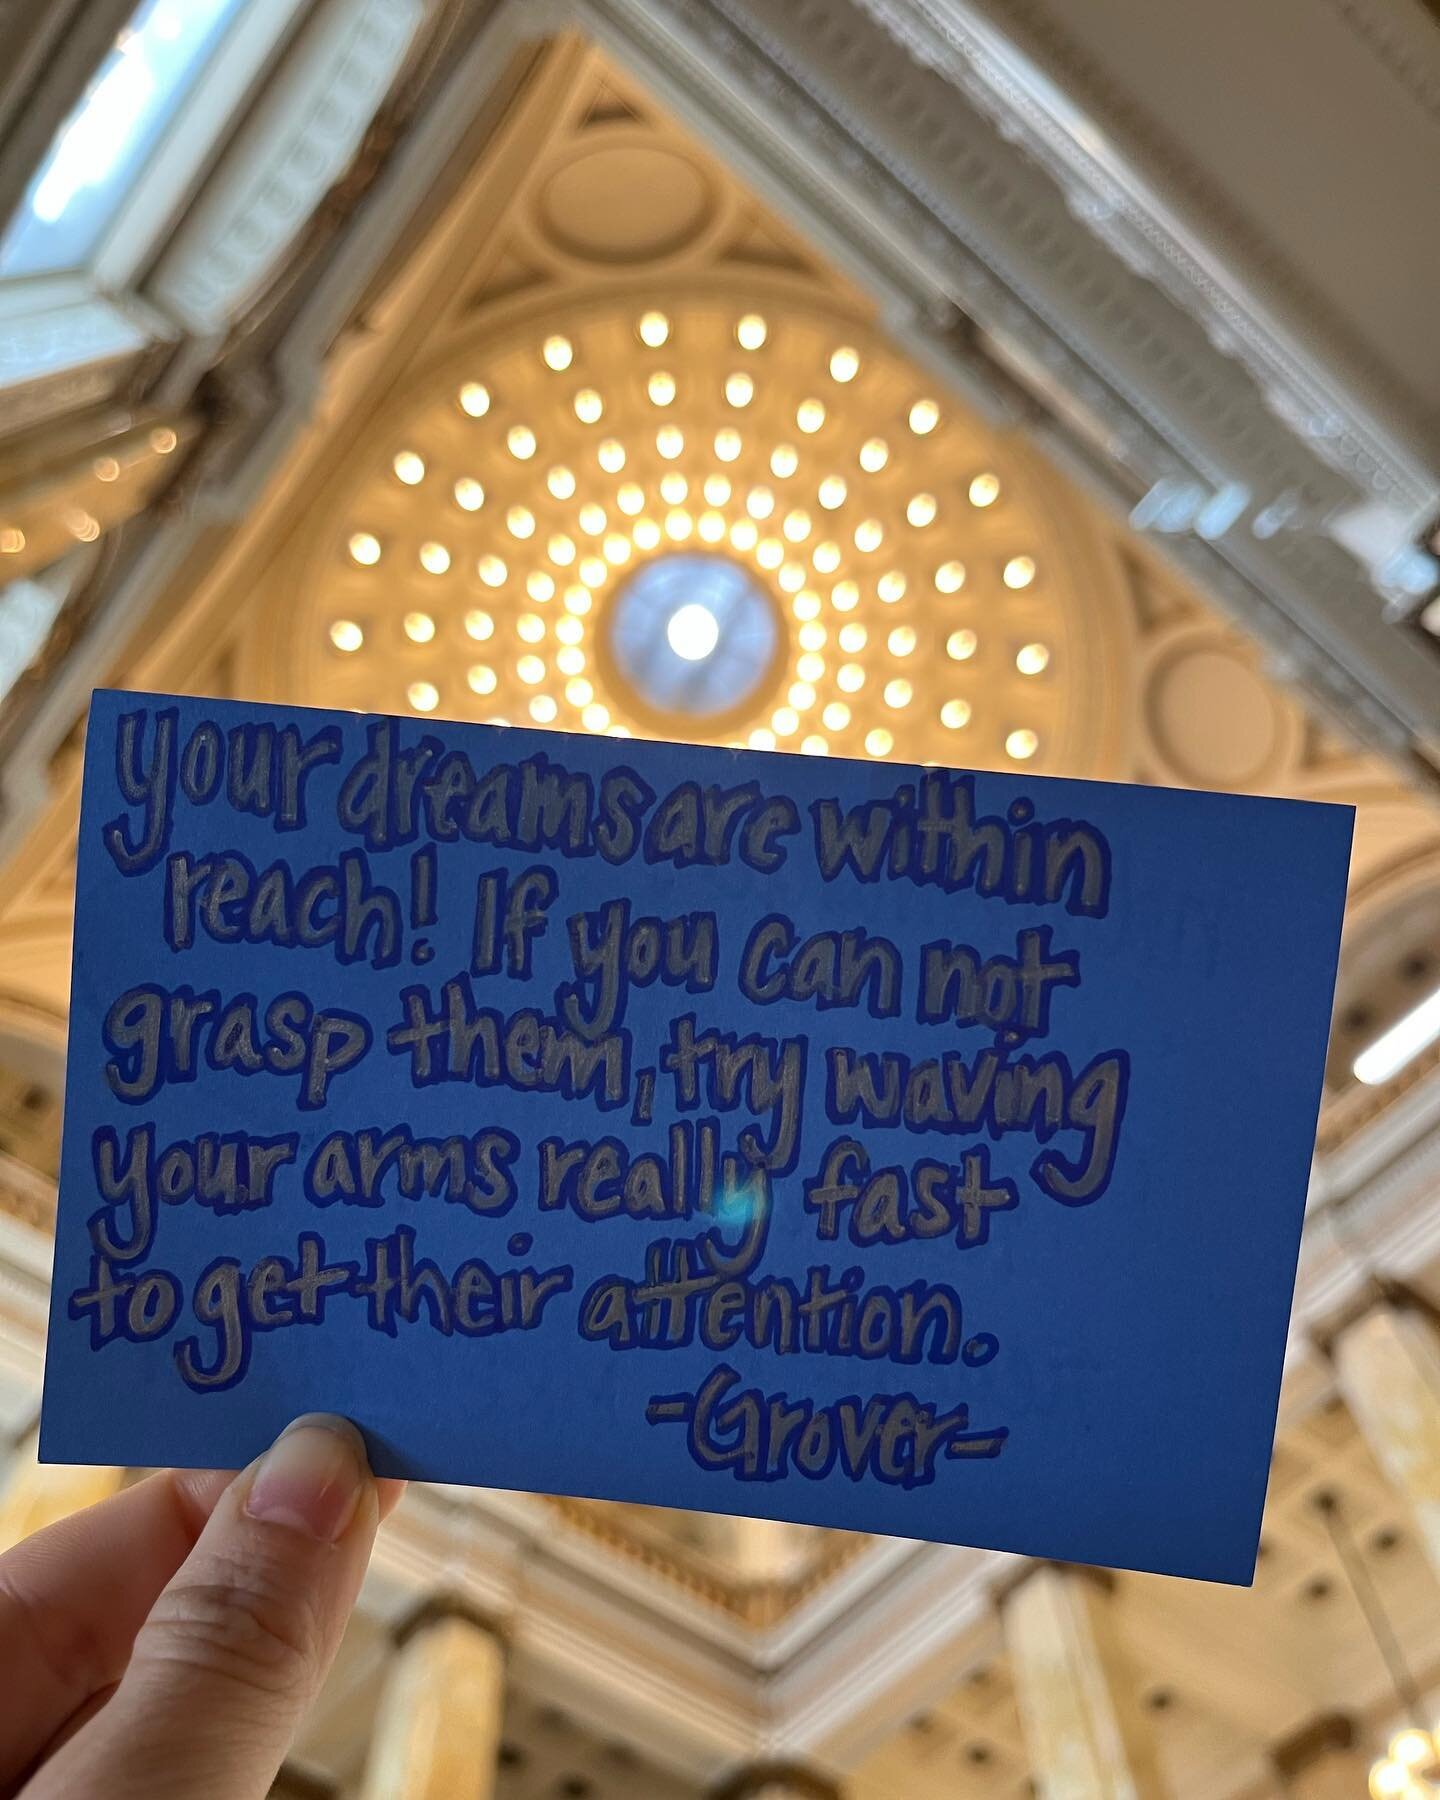 your dreams are within
reach! If you can not
grasp them, try waving
your arms really fast
to get their attention.
-Grover-